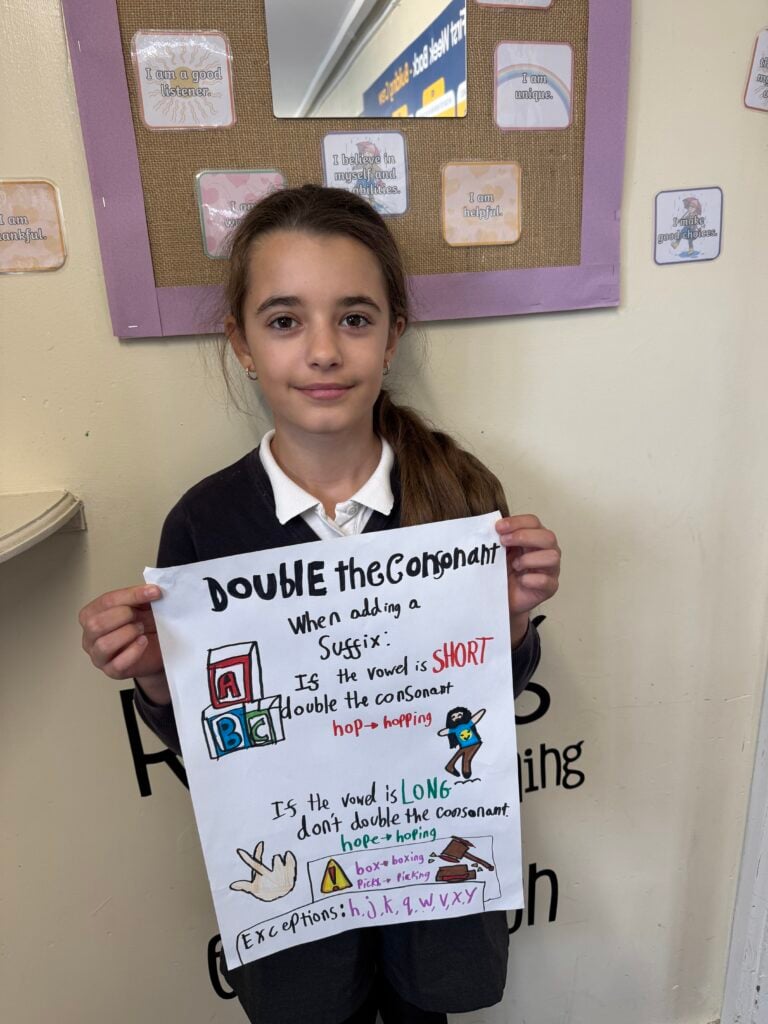 First Week Back - Building Our
I am a good
listener.
I am
unique.
I believe in
myself and
abilities.
I am
helpful.
I am
I make
good choices.
am
ankful.
DOUBLE the Consonant
When adding a
Suffix:
If the vowel is SHORT
double the consonant
hop → hopping
A
B C
If the vowel is LONG
don't double the consonant.
hope → hoping
box → boxing
Pick → Picking
Exceptions: h, j, k, q, w, v, x, y